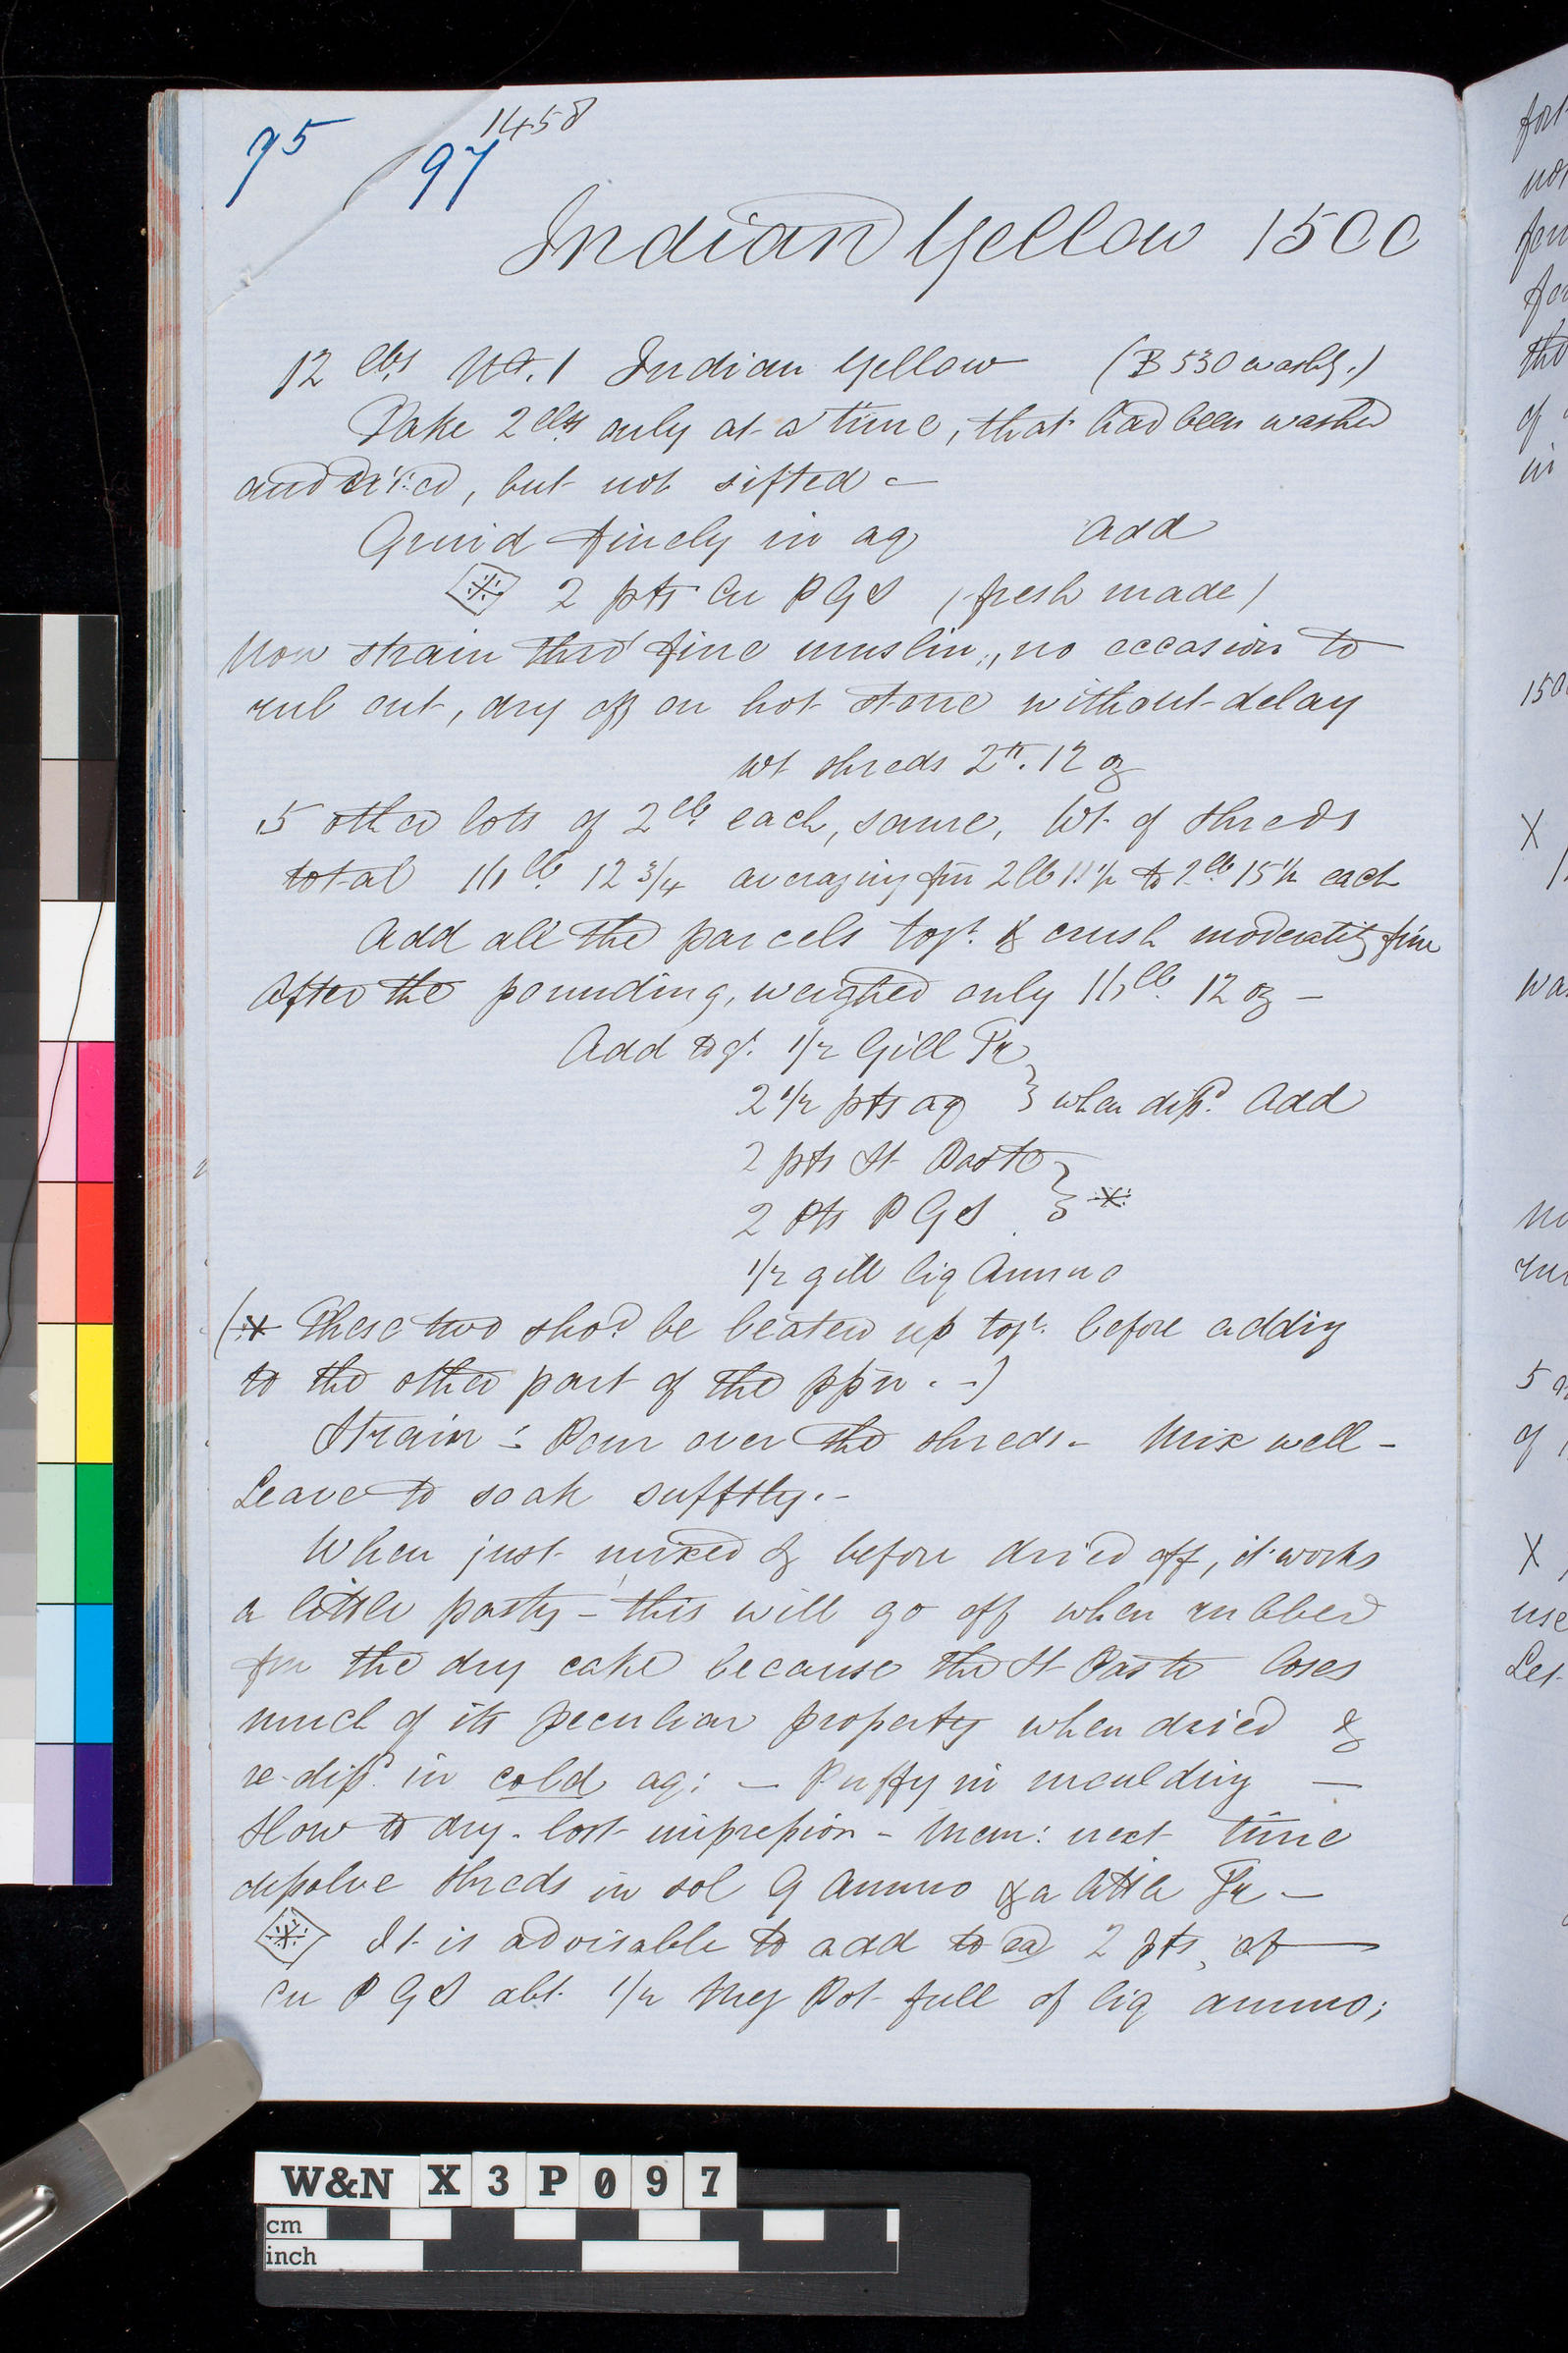 95 97 1458
Indian Yellow 1500
12 lbs No. 1 Indian Yellow (B 530 washg.)
Take 2 lbs only at a time, that had been washed
and dried, but not sifted -
Grind finely in aq add
※ 2 pts Cu P G S (fresh made)
Now strain thro' fine muslin, no occasion to
rub out, dry off on hot stone without delay
wt shreds 2 lb. 12 oz
5 other lots of 2 lb. each, same, Wt. of shreds
total lb. 12 3/4 averaging fm 2 lb 11 1/2 to 2 lb 15 1/2 each
Add all the parcels togr. & crush moderately fine
After the pounding, weighed only lb. 12 oz -
Add togr. 1/2 Gill Tr
2 1/2 pts aq } when dissd. Add
2 pts St Paste
2 Pts P G S } *
1/2 gill liq Ammo
(* These two shod. be beaten up togr. before adding
to the other part of the ppn. -)
Strain - Pour over the shreds - Mix well -
Leave to soak sufftly. -
When just mixed & before dried off, it works
a little pasty - this will go off when rubbed
fm the dry cake because the St Paste loses
much of its peculiar property when dried &
re-dissd. in cold aq: - Puffy in moulding -
Slow to dry - lost impression - Mem: next time
dissolve shreds in sol G Ammo & a little Tr -
※ It is advisable to add to ea 2 pts, of
Cu P G S abt. 1/2 Meg Pot full of liq ammo;
for
150
X
Wa
5
of
X
use
Let
W&N X 3 P 0 9 7
cm
inch